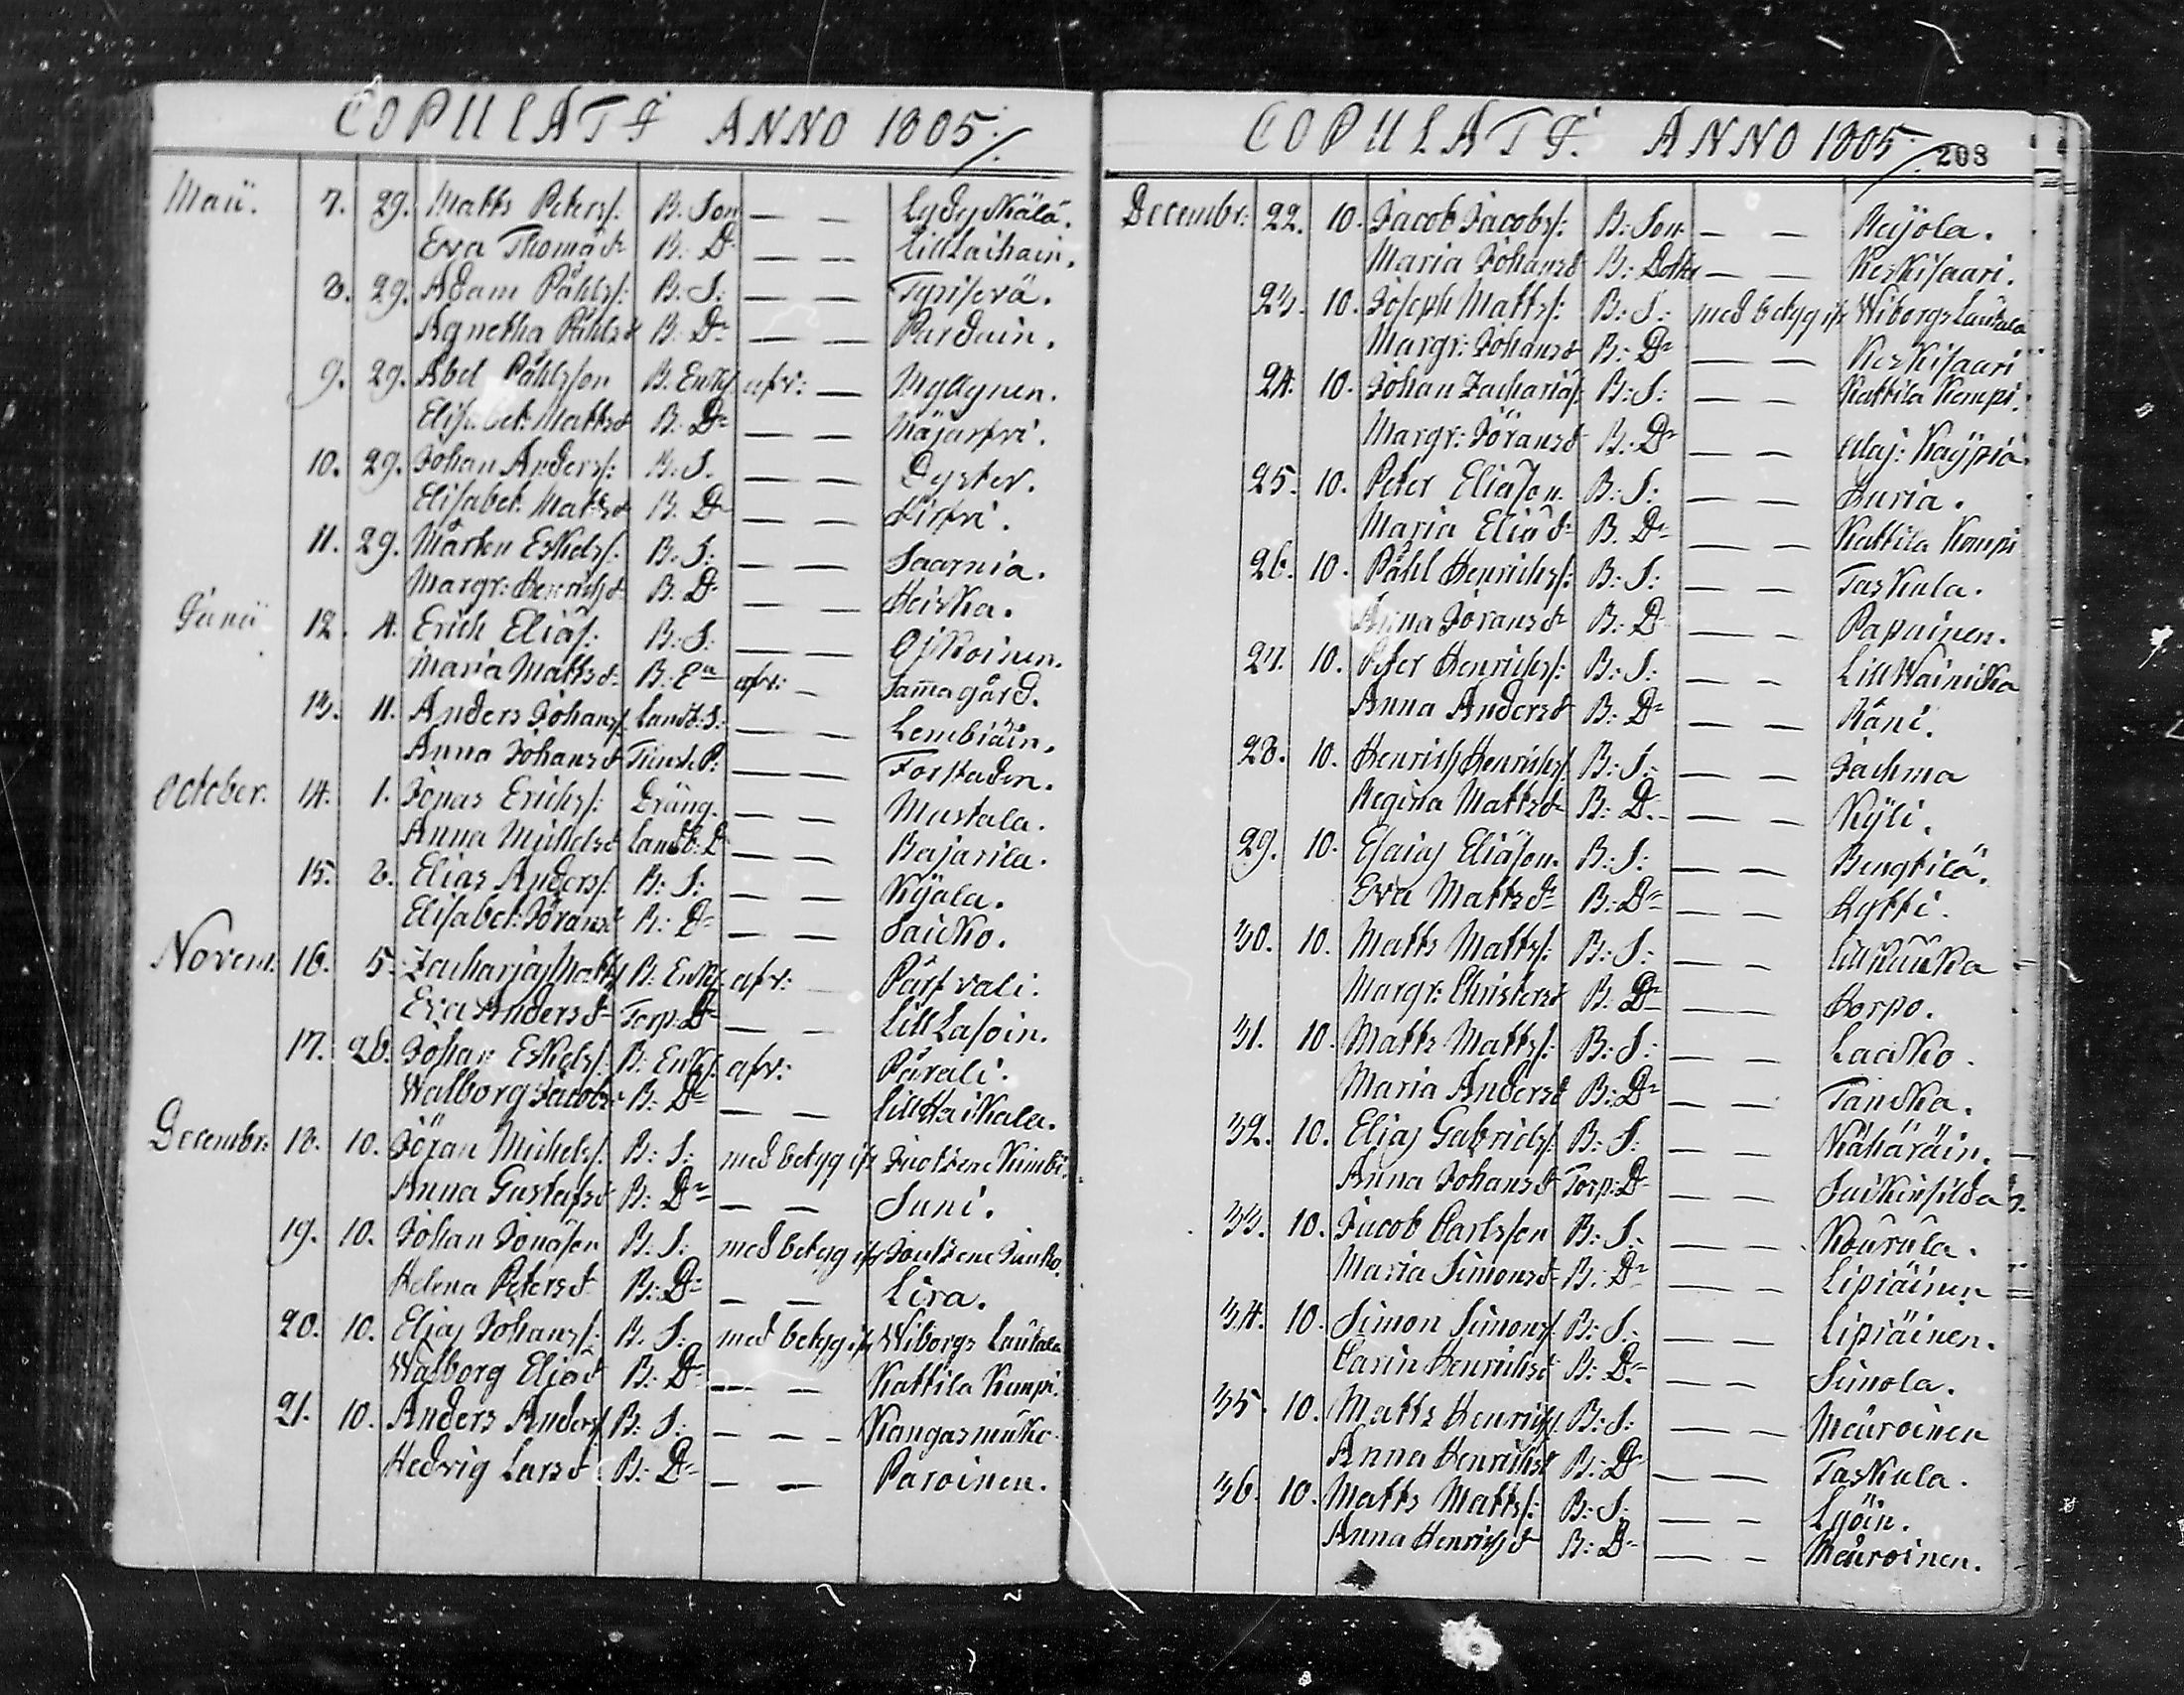 COPULATI ANNO 1805./.
Maii. 7. 29. Matts Peters/: B. Son — — Lydykälä.
Eva Thomæ dr B: Dr — — Lill Laihain.
8. 29. Adam Påhls/: B. S: — — Tyriserä.
Agnetha Påhls dr B: Dr — — Pardain.
9. 29. Abel Påhlsson B. Enkl. afr: — Myllynen.
Elisabet: Matts dr B: Dr — — Majarfvi.
10. 29. Johan Anders/: B: S. — — Dyster.
Elisabet: Matts dr B. Dr — — Hirfvi.
11. 29. Mårten Eskels/: B: S: — — Saarnia.
Margr: Henrichs dr B. Dr — — Heicka.
Junii 12. 4. Erich Elias/: B: S: — — Ojkoinen.
Maria Matts dr B: Ea afr: — Samagård.
13. 11. Anders Johans/: Landb: S: — — Lembiäin.
Anna Johans dr Tienst. P: — — Forstaden.
October. 14. 1. Jonas Erichs/: Dräng. — — Mustala.
Anna Michels dr Landb: D — — Bajarila.
15. 8. Elias Anders/: B: S: — — Kyjala.
Elisabet: Jörans dr B: Dr — — Saicko.
Novem. 16. 5. Zacharias Matts/ B: Enkl. afr: — Pärfvali.
Eva Anders dr Torp: Dr — — Lill Lasoin.
17. 26. Johan Eskels/: B: Enkl. afr: Pärali.
Walborg Jacobs dr B: Dr — — Lill Haikala.
Decembr: 18. 10. Jöran Michels/: B: S: med betyg ifr Juotseno Kimbi.
Anna Gustafs dr B: Dr — — Suni.
19. 10. Johan Jonason B. S: med betyg ifr Joutseno Junko.
Helena Peters dr B: Dr — — Lira.
20. 10. Elias Johans/: B. S: med betyg ifr Wiborgs Lautala
Walborg Eliæ dr B: Dr — — Kattila Kempi.
21. 10. Anders Anders/: B: S: — — — Kangasmäko.
Hedvig Lars dr B: Dr — — Paroinen.
COPULATI. ANNO 1805./. 208
Decembr: 22. 10. Jacob Jacobs/: B: Son — — Räjöla.
Maria Johans dr B: Dotter — — Keskisaari.
23. 10. Joseph Matts/: B: S: med betyg ifr Wiborgs Lautala
Margr: Johans dr B: Dr — — Keskisaari
24. 10. Johan Zacharias/: B: S: — — Kattila Kempi.
Margr: Jörans dr B: Dr — — Alaj: Kaypiä.
25. 10. Peter Eliason. B: S: — — Huria.
Maria Eliæ dr B. Dr — — Kattila Kempi
26. 10. Påhl Henrichs/: B: S: — — Taskula.
Anna Jörans dr B: Dr — — Papainen.
27. 10. Peter Henrichs/: B: S: — — Lill Wainicka
Anna Anders dr B: Dr — — Räni.
28. 10. Henrich Henrichs/: B: S: — — Jachma
Regina Matts dr B: D. — — Kyli.
29. 10. Esaias Eliason. B: S: — — Bengtilä.
Eva Matts dr B: Dr — — Hytti.
30. 10. Matts Matts/: B: S: — —
Margr: Christers dr B: Dr — — Horpo.
31. 10. Matts Matts/: B: S: — — Laacko.
Maria Anders dr B: Dr — — Tancka.
32. 10. Elias Gabriels/: B: S: — — Kähäräin.
Anna Johans dr Torp: Dr — — Suikinsilda
33. 10. Jacob Carlsson B: S: — — Kourula.
Maria Simons dr B: Dr — — Lipiäinen
34. 10. Simon Simons/: B: S: — — Lipiäinen.
Carin Henrichs dr B: Dr — — Simola.
35. 10. Matts Henrichs/: B: S: — — Meuroinen
Anna Henrichs dr B: Dr — — Taskula.
36. 10. Matts Matts/: B: S: — — Lyöin.
Anna Henrichs dr B: Dr — — Meuroinen.